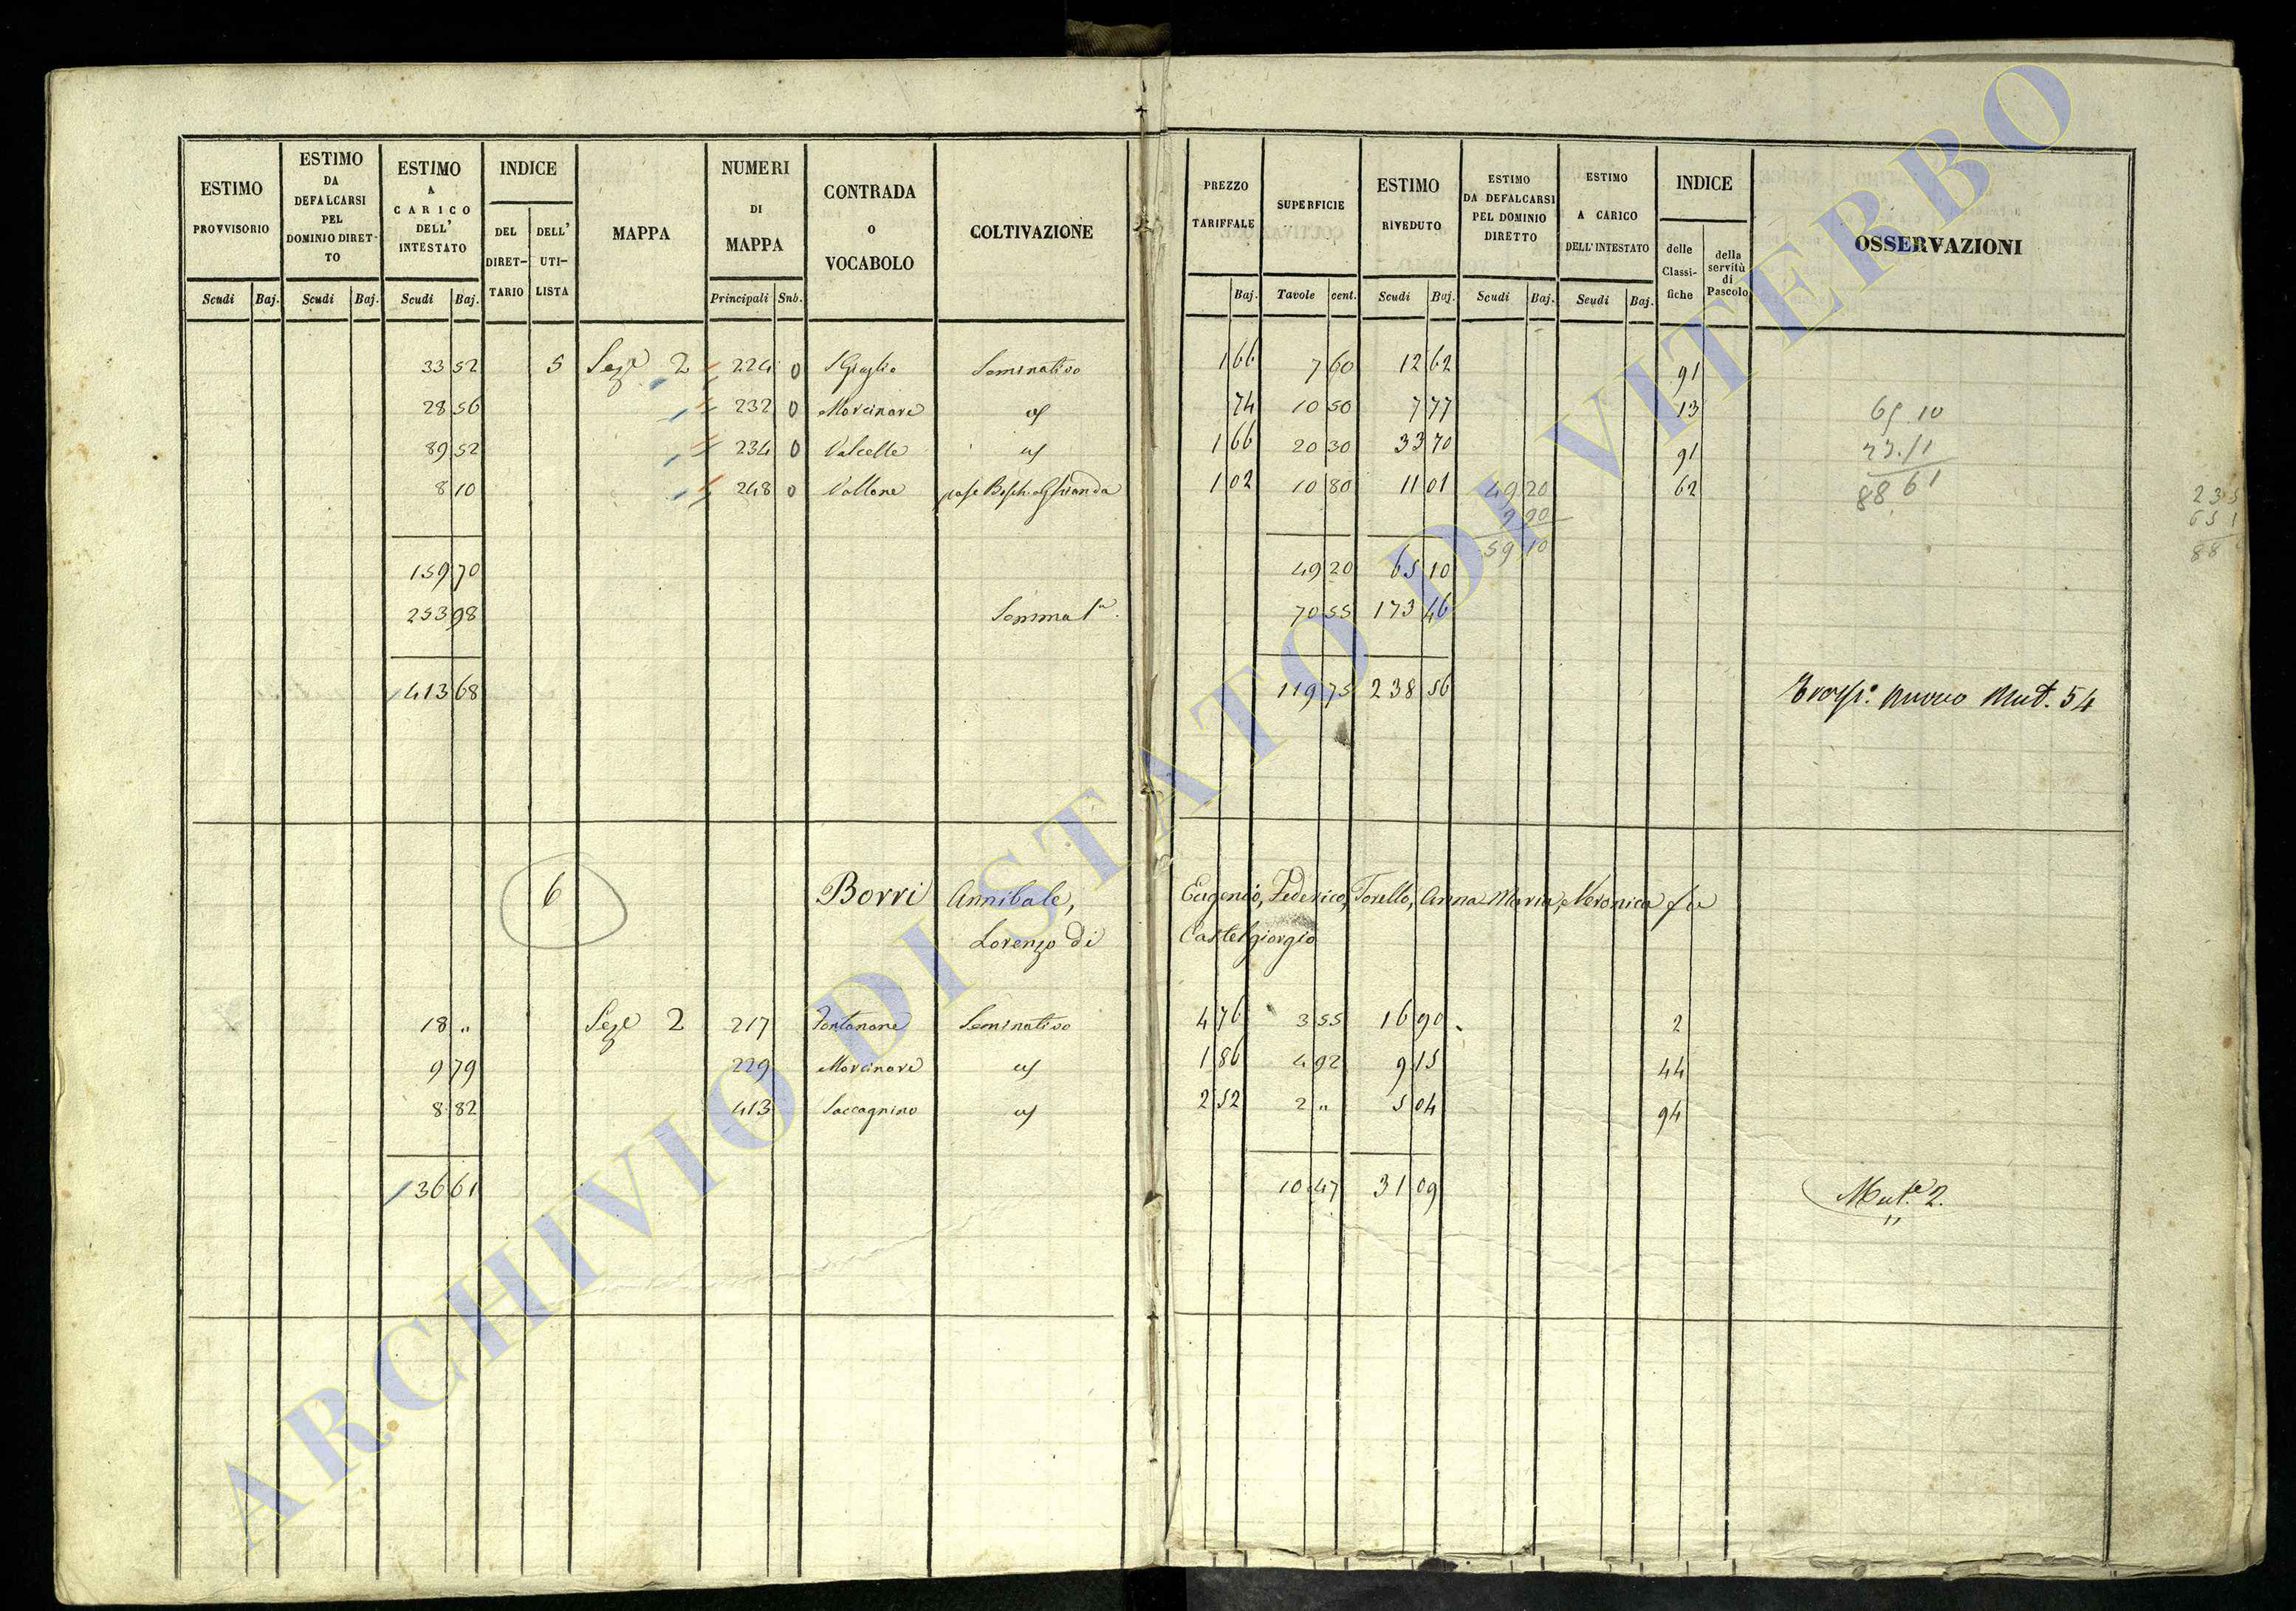 ESTIMO PROVVISORIO Scudi Baj.
ESTIMO DA DEFALCARSI PEL DOMINIO DIRET-TO Scudi Baj.
ESTIMO A CARICO DELL' INTESTATO Scudi Baj.
INDICE DEL DIRET-TARIO DELL' UTI-LISTA
MAPPA
NUMERI DI MAPPA Principali Sub.
CONTRADA o VOCABOLO
COLTIVAZIONE
PREZZO TARIFFALE Baj.
SUPERFICIE Tavole cent.
ESTIMO RIVEDUTO Scudi Baj.
ESTIMO DA DEFALCARSI PEL DOMINIO DIRETTO Scudi Baj.
ESTIMO A CARICO DELL' INTESTATO Scudi Baj.
INDICE delle Classi-fiche della servitù di Pascolo
OSSERVAZIONI
33 52 5 2 224 0 Seminativo 1 66 7 60 12 62 91
28 56 232 0 Morcinare 74 10 50 7 77 13 65 10
89 52 234 0 Valcelle 1 66 20 30 33 70 91 23.51
8 10 248 0 Vallone 1 02 10 80 11 01 49 20 62 88 61
9 90
59 10
159 70 49 20 65 10
253 98 Somma 1a 70 55 173 46
413 68 119 75 238 56 nuovo Mut. 54
6 Borri Annibale, Eugenio, Federico, Torello, Anna Maria, Veronica fu
Lorenzo di Castelgiorgio
18 " 2 217 Fontanone Seminativo 4 76 3 55 16 90 2
9 79 229 Morcinare 1 86 4 92 9 15 44
8 82 413 Saccagnino 2 52 2 " 5 04 94
36 61 10 47 31 09 Mut.e 2.
ARCHIVIO DI STATO DI VITERBO